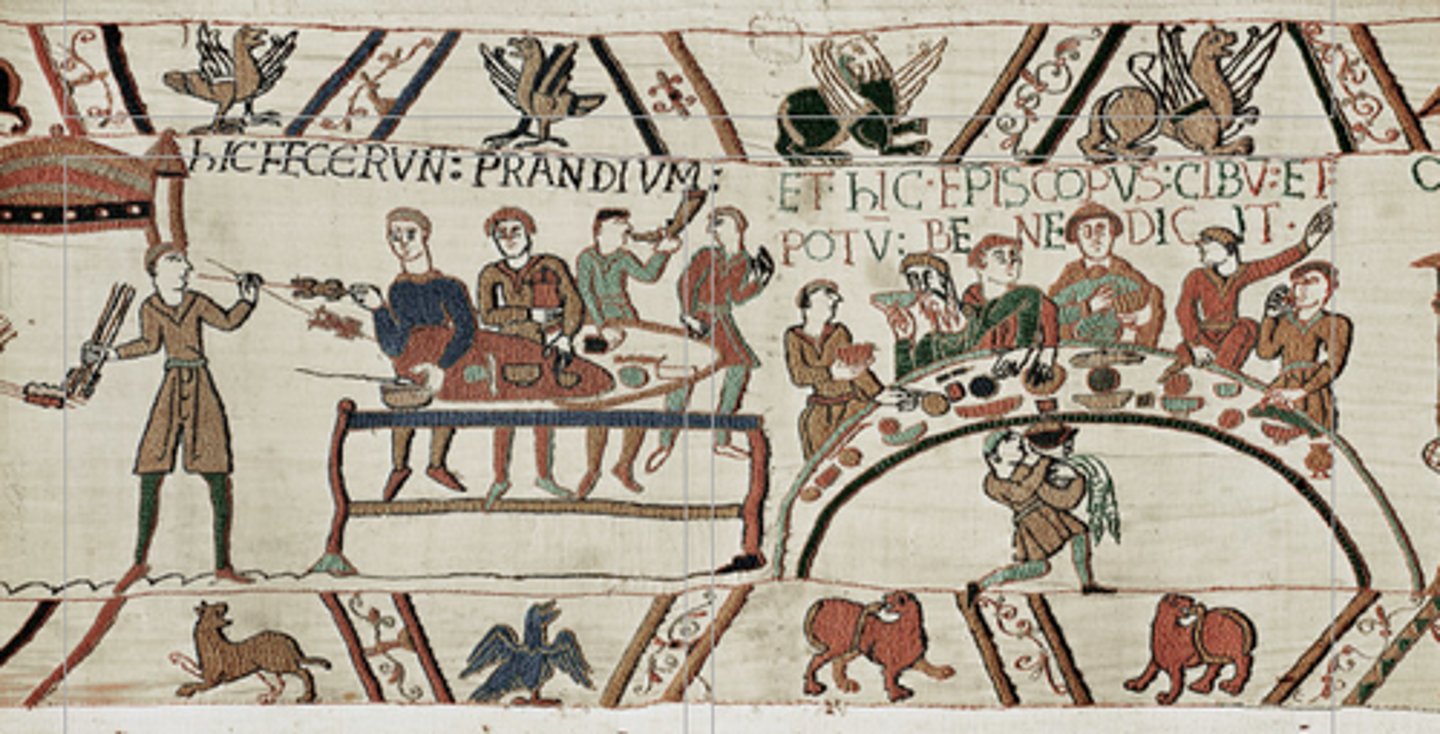 hIC FECERVN: PRANDIVM:
ET·hIC·EPISCOPVS:CIBV:ET
POTV̄: BE NE DIC IT·